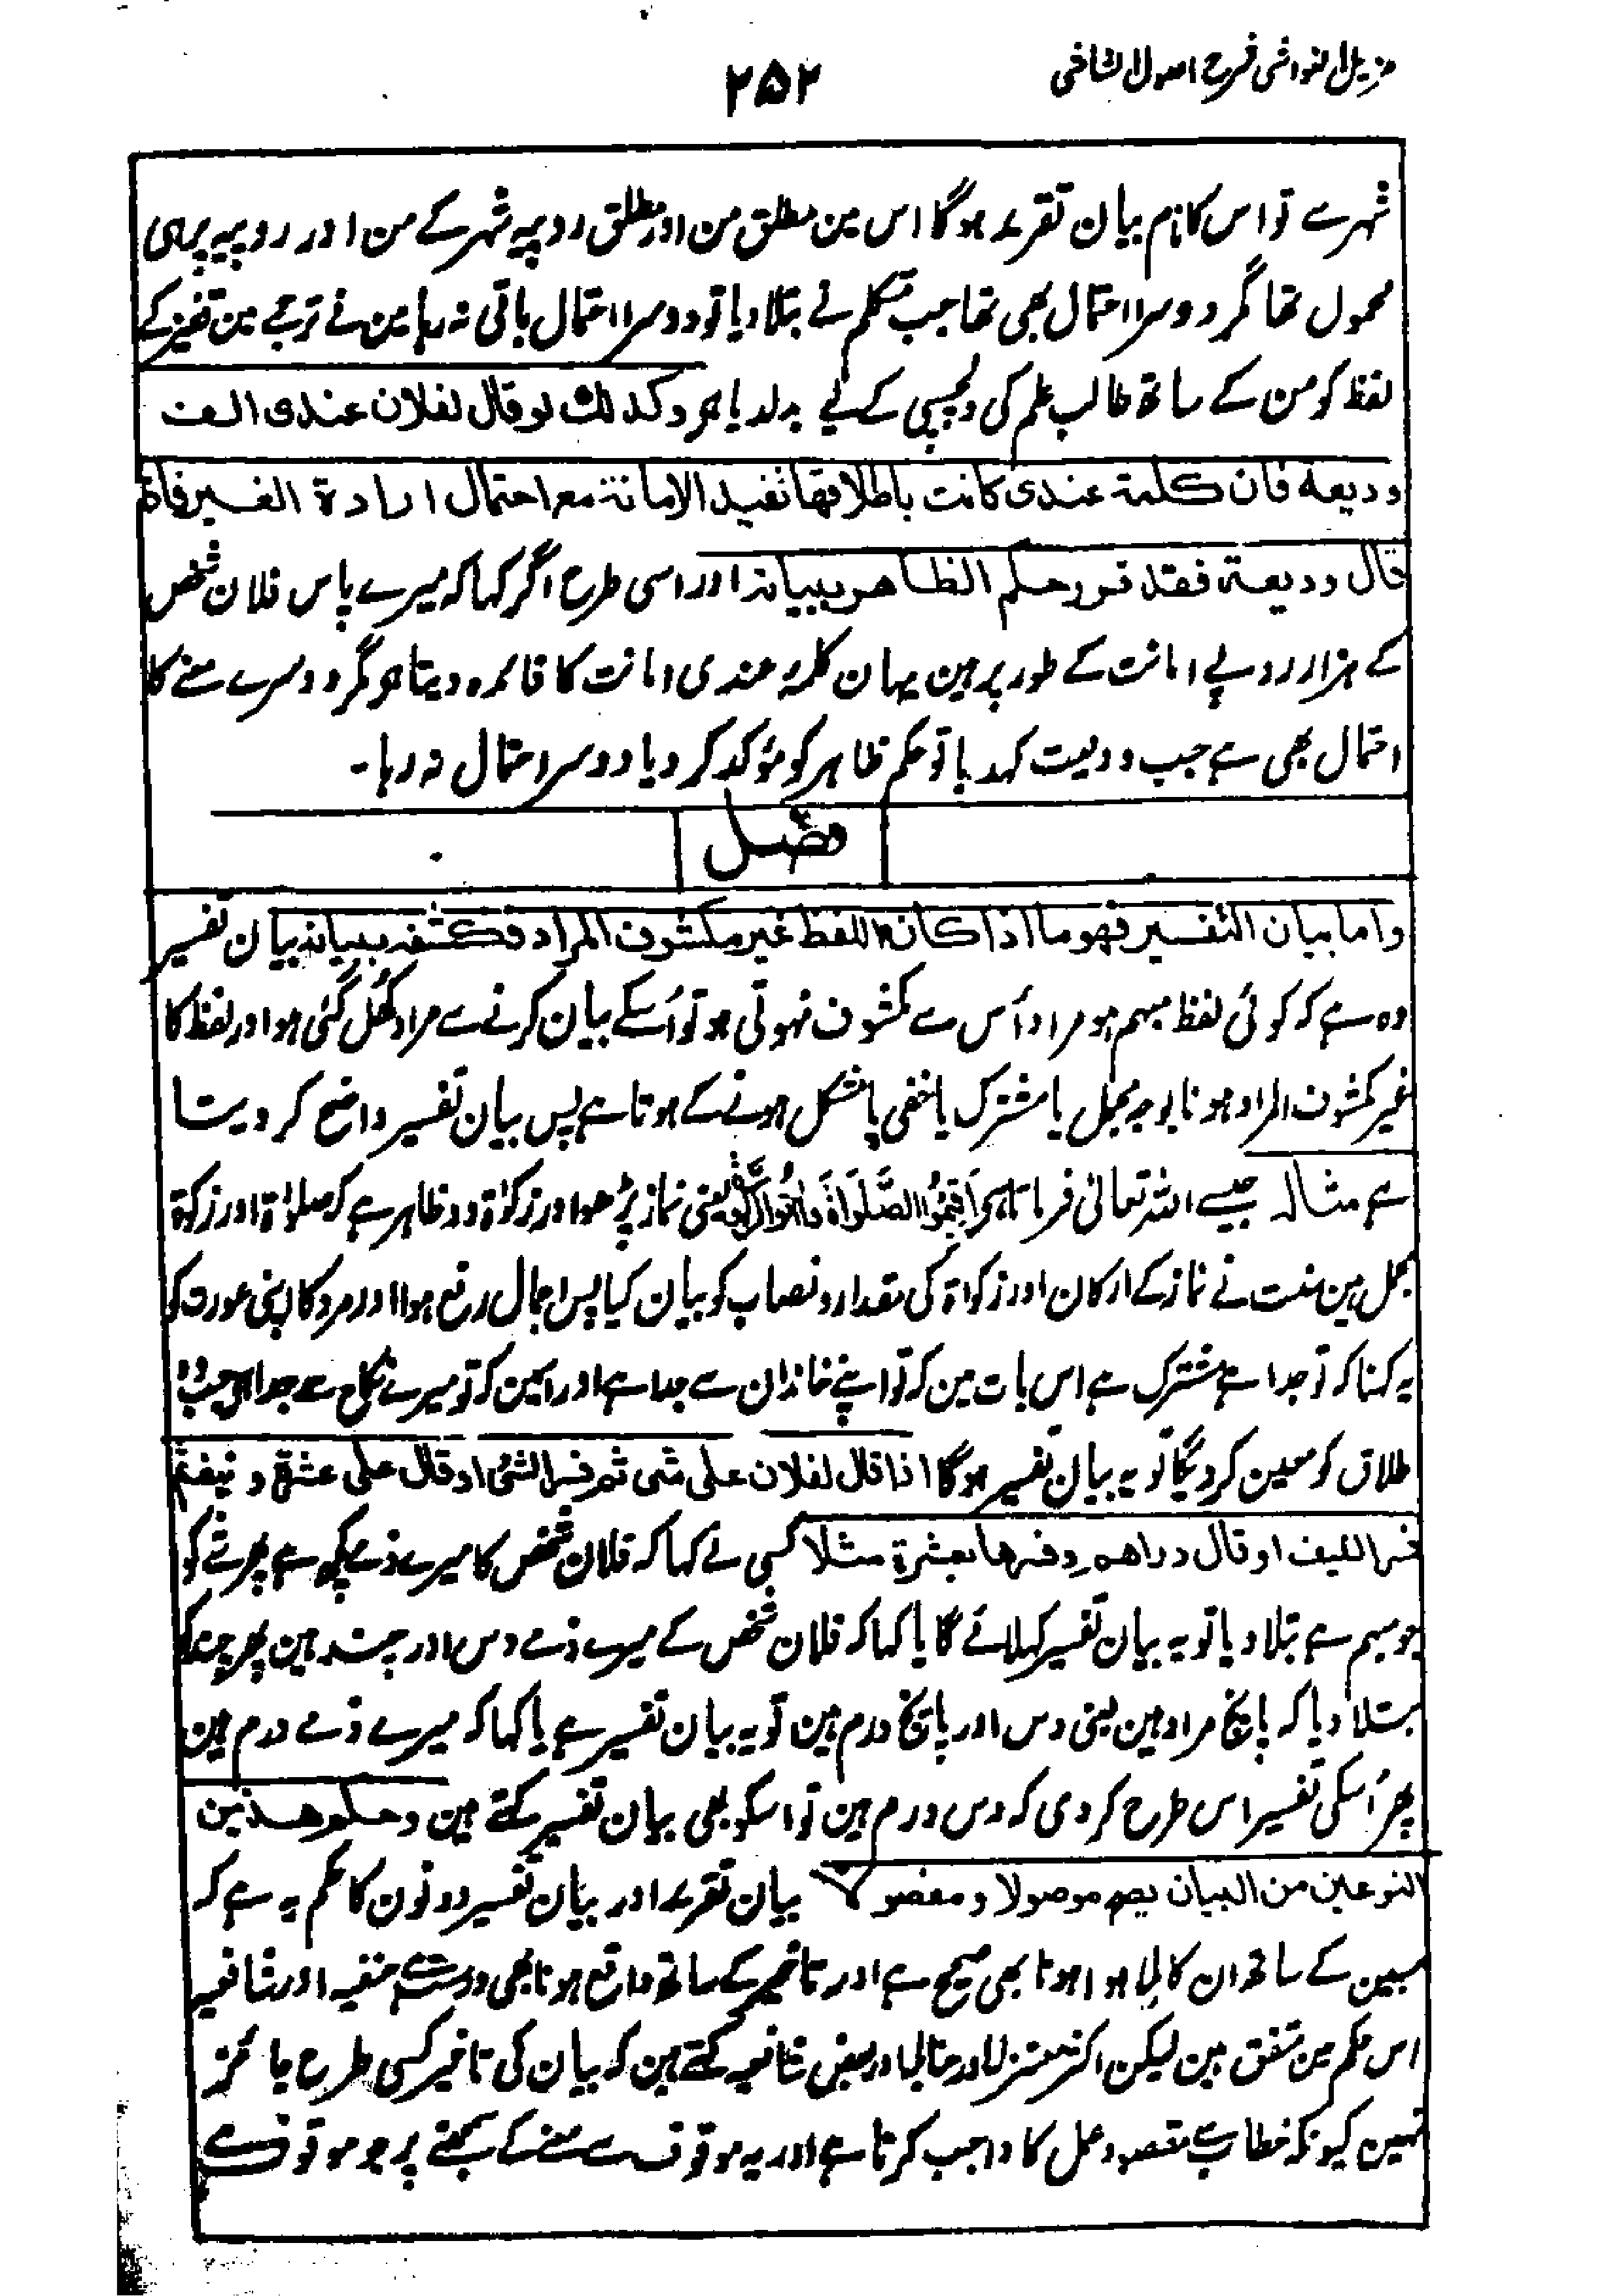 مزیل الغواشی شرح اصول الشاشی
۲۵۲
شہر ے تو اس کا نام بیان تقریر ہوگا اس مین مطلق من اور مطلق روپیہ شہر کے من اور روپیہ پر ہی
محمول تھا مگر دوسرا احتمال بھی تھا جب متکلم نے بتلا دیا تو دوسرا احتمال باقی نہ رہا مین نے ترجمے مین قفیز کے
لفظ کو من کے ساتھ طالب علم کی دلچسپی کے لیے بدلدیا ہو وکذلك لو قال لفلان عندی الف
ودیعة فان کلمة عندی کانت باطلاقھا تفید الامانة مع احتمال ارادة الغیر فاذا
قال ودیعة فقد قرر حکم الظاھر ببیانه اور اسی طرح اگر کہا کہ میرے پاس فلان شخص
کے ہزار روپے امانت کے طور پر ہین یہان کلمۂ عندی امانت کا فائدہ دیتا ہو مگر دوسرے معنے کا
احتمال بھی ہے جب ودیعت کہدیا تو حکم ظاہر کو مؤکد کر دیا دوسرا احتمال نہ رہا۔
فصل
واما بیان التفسیر فھو ما اذا کان اللفظ غیر مکشوف المراد فکشفه ببیانه بیان تفسیر
وہ ہے کہ کوئی لفظ مبہم ہو مراد اُس سے مکشوف نہوتی ہو تو اُسکے بیان کرنے سے مراد کھل گئی ہو اور لفظ کا
غیر مکشوف المراد ہونا بوجہ مجمل یا مشترک یا خفی یا مشکل ہونے کے ہوتا ہے پس بیان تفسیر واضح کر دیتا
ہے مثالہ جیسے اللہ تعالی فرماتا ہو اَقِیْمُوا الصَّلٰوةَ وَاٰتُوا الزَّکٰوةَ یعنی نماز پڑھو اور زکوٰۃ دو ظاہر ہے کہ صلوٰۃ اور زکوٰۃ
مجمل ہین سنت نے نماز کے ارکان اور زکوٰۃ کی مقدار و نصاب کو بیان کیا پس اجمال رفع ہوا اور مرد کا اپنی عورت کو
یہ کہنا کہ تو جدا ہے مشترک ہے اس بات مین کہ تو اپنے خاندان سے جدا ہے اور اسمین کہ تو میرے نکاح سے جدا ہو جب وہ
طلاق کو معین کردیگا تو یہ بیان تفسیر ہوگا اذا قال لفلان علی شی ثم فسر الشئ او قال علی عشرة ونیف ثم
فسر النیف او قال دراھم وفسرھا بعشرة مثلا کسی نے کہا کہ فلان شخص کا میرے ذمے کچھ ہے پھر شے کو
جو مبہم ہے بتلا دیا تو یہ بیان تفسیر کہلائے گا یا کہا کہ فلان شخص کے میرے ذمے دس اور چند ہین پھر چند کو
بتلا دیا کہ پانچ مراد ہین یعنی دس اور پانچ درم ہین تو یہ بیان تفسیر ہے یا کہا کہ میرے ذمے درم ہین
پھر اُسکی تفسیر اس طرح کر دی کہ دس درم ہین تو اسکو بھی بیان تفسیر کہتے ہین وحکم ھذین
النوعین من البیان یصح موصولا ومفصولا بیان تقریر اور بیان تفسیر دونون کا حکم یہ ہے کہ
مبین کے ساتھ ان کا ملا ہوا ہونا بھی صحیح ہے اور تاخیر کے ساتھ واقع ہونا بھی درست ہے حنفیہ اور شافعیہ
اس حکم مین متفق ہین لیکن اکثر معتزلہ اور حنابلہ اور بعض شافعیہ کہتے ہین کہ بیان کی تاخیر کسی طرح جائز
نہین کیونکہ خطاب سے مقصود عمل کا واجب کرنا ہے اور یہ موقوف ہے معنے کے سمجھنے پر جو موقوف ہے